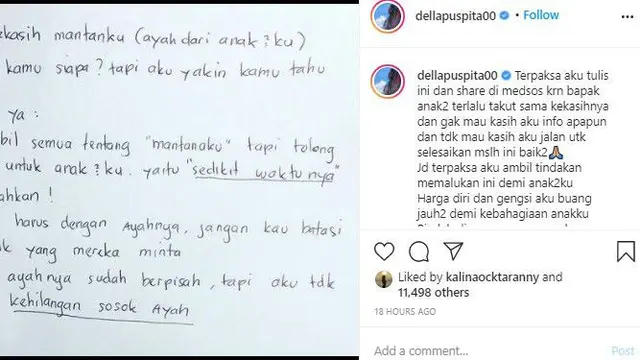 kasih mantanku (ayah dari anak²ku)
kamu siapa? tapi aku yakin kamu tahu
ya :
bil semua tentang "mantanaku" tapi tolong
untuk anak²ku. yaitu "sedikit waktunya"
ahkan !
harus dengan Ayahnya, jangan kau batasi
k yang mereka minta
ayahnya sudah berpisah, tapi aku tdk
kehilangan sosok Ayah
dellapuspita00 • Follow
dellapuspita00 Terpaksa aku tulis
ini dan share di medsos krn bapak
anak2 terlalu takut sama kekasihnya
dan gak mau kasih aku info apapun
dan tdk mau kasih aku jalan utk
selesaikan mslh ini baik2🙏🏽
Jd terpaksa aku ambil tindakan
memalukan ini demi anak2ku
Harga diri dan gengsi aku buang
jauh2 demi kebahagiaan anakku
Liked by kalinaocktaranny and
11,498 others
18 HOURS AGO
Add a comment... Post